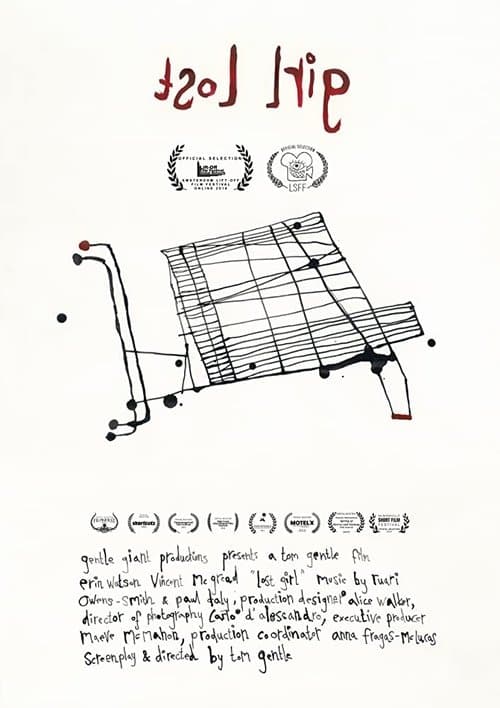 girl Lost
OFFICIAL SELECTION
AMSTERDAM LIFT-OFF
FILM FESTIVAL
ONLINE 2018
OFFICIAL SELECTION
LSFF
shortcutz
MOTELX
SHORT FILM
FESTIVAL
gentle giant productions presents a tom gentle film
erin watson Vincent McGread "lost girl" music by ruari
Owens-Smith & paul daly, production designer alice walker,
director of photography Carlo d'alessandro, executive producer
Maeve McMahon, production coordinator anna fragas-McLucas
Screenplay & directed by tom gentle